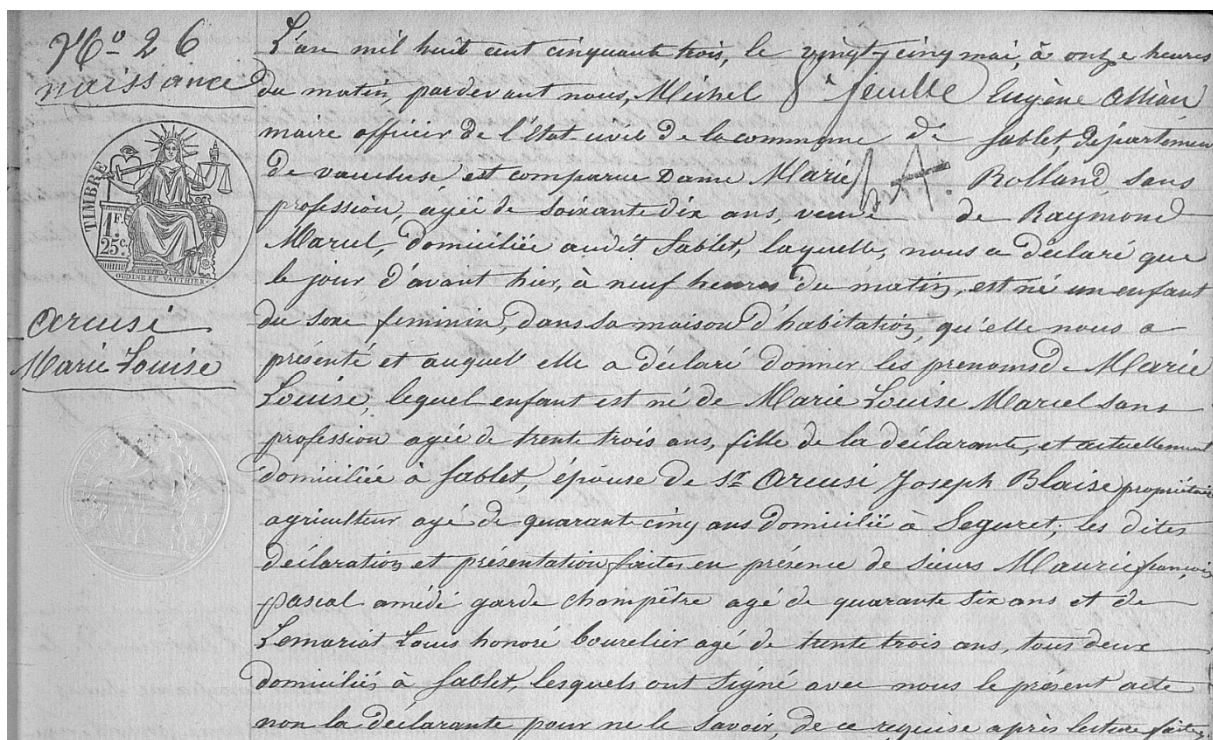 No 26
naissance
TIMBRE
1 F.
25c.
OUDINÉ ET VAUTHIER
arcusi
Marie Louise
L'an mil huit cent cinquante trois, le vingt-cinq mai, à onze heures
du matin, pardevant nous, Michel 8e feuille Eugène
maire officier de l'état civil de la commune de Sablet, département
de vaucluse est comparue Dame Marie h.A. Rolland, sans
profession, agée de soixante dix ans, veuve de Raymond
Mariel, domiciliée audit Sablet, laquelle, nous a déclaré que
le jour d'avant hier, à neuf heures du matin, est né un enfant
du sexe feminin, dans sa maison d'habitation, qu'elle nous a
présenté et auquel elle a déclaré donner les prenoms de Marie
Louise, lequel enfant est né de Marie Louise Mariel sans
profession agée de trente trois ans, fille de la déclarante, et actuellement
domiciliée à Sablet, épouse de Sr arcusi Joseph Blaise propriétaire
agriculteur agé de quarante cinq ans domicilié à Seguret; les dites
déclaration et présentation faites en présence de sieurs Maurie françois
pascal amédé garde champêtre agé de quarante six ans et de
Lemariat Louis honoré bourelier agé de trente trois ans, tous deux
domiciliés à Sablet, lesquels ont signé avec nous le présent acte
non la déclarante pour ne le savoir, de ce requise après lecture faite.